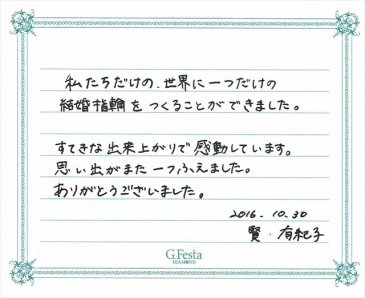 私たちだけの、世界に一つだけの
結婚指輪をつくることができました。
すてきな出来上がりで感動しています。
思い出がまた一つふえました。
ありがとうございました。
2016. 10. 30
賢・有紀子
G.Festa
DIAMOND